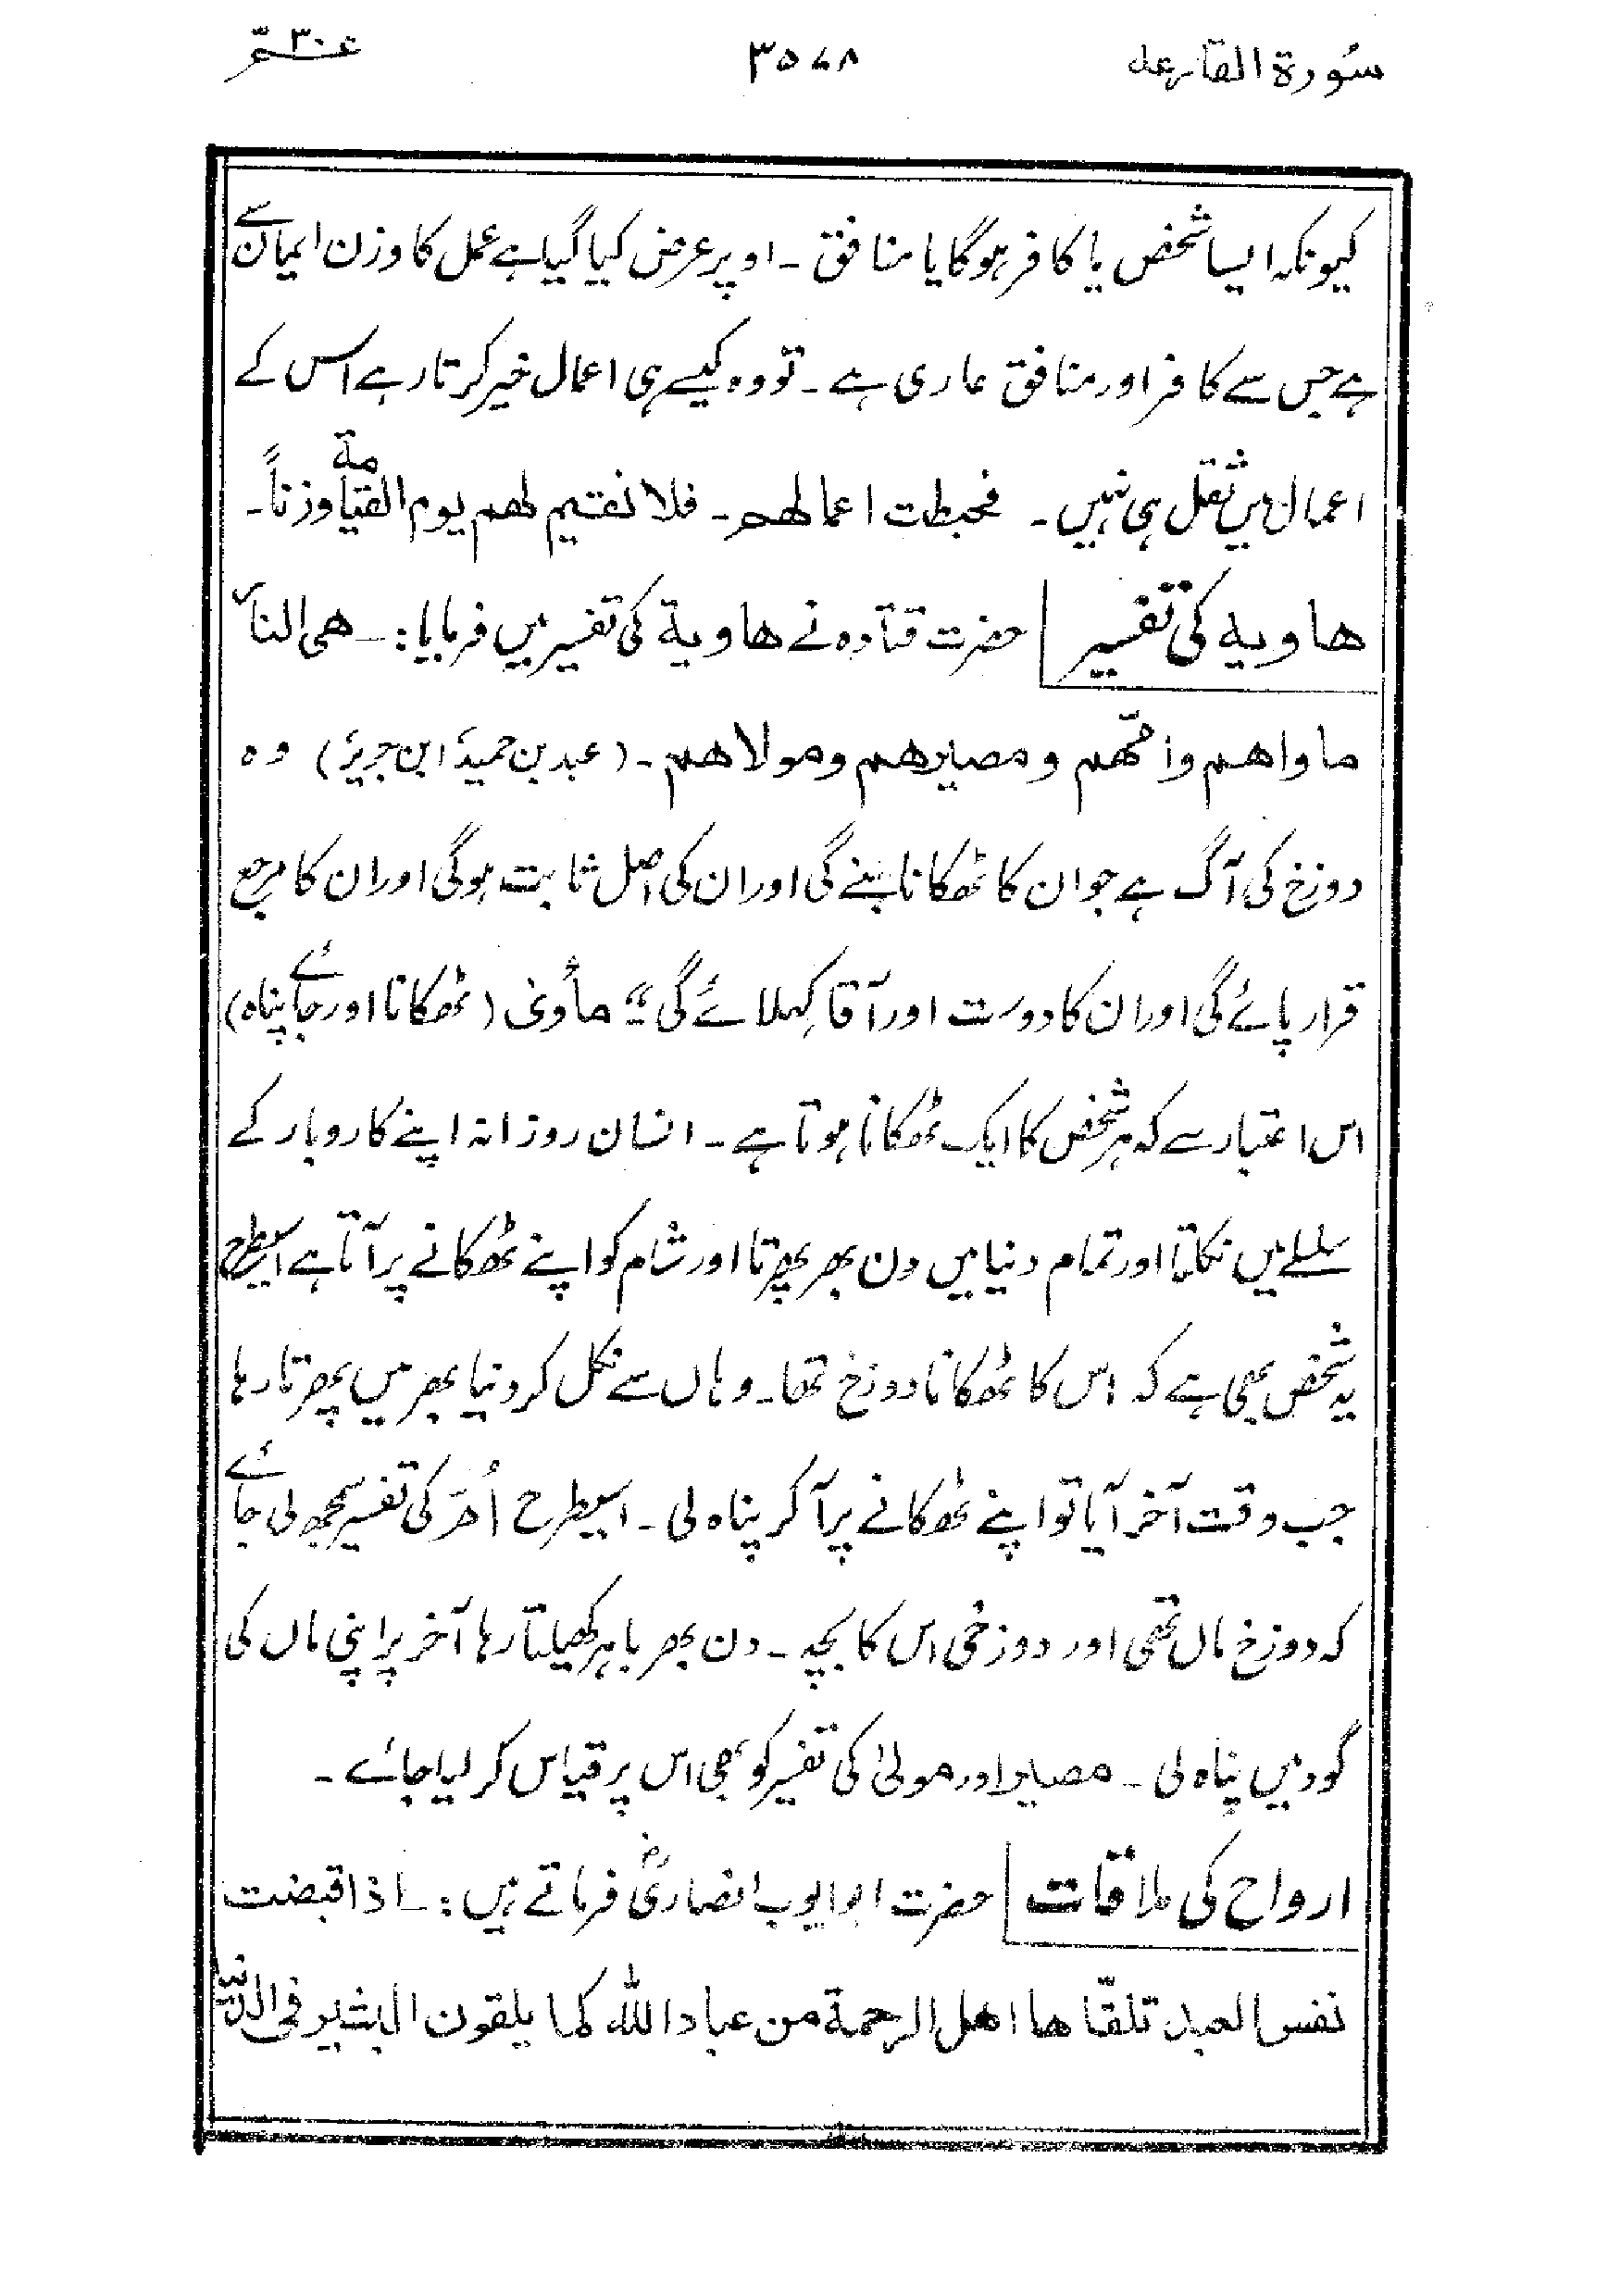 سُورة القارعه ۳۵۷۸ عـمّ ۳۰
کیونکہ ایسا شخص یا کافر ہوگا یا منافق ۔ اوپر عرض کیا گیا ہے عمل کا وزن ایمان سے
ہے جس سے کافر اور منافق عاری ہے ۔ تو وہ کیسے ہی اعمال خیر کرتا رہے اس کے
اعمال میں ثقل ہی نہیں ۔ فحبطت اعمالھم ۔ فلا نقیم لھم یوم القیامة وزناً ۔
ھاویہ کی تفسیر حضرت قتادہ نے ھاویة کی تفسیر میں فرمایا :۔ ھی النار
ماواھم وامّھم ومصیرھم ومولاھم ۔ (عبد بن حمیدؒ ابن جریرؒ) وہ
دوزخ کی آگ ہے جو ان کا ٹھکانا بنے گی اور ان کی اصل ثابت ہوگی اور ان کا مرجع
قرار پائے گی اور ان کا دوست اور آقا کہلائے گی ؛؛ مأویٰ (ٹھکانا اور جائے پناہ)
اس اعتبار سے کہ ہر شخص کا ایک ٹھکانا ہوتا ہے ۔ انسان روزانہ اپنے کاروبار کے
سلسلے میں نکلتا اور تمام دنیا میں دن بھر پھرتا اور شام کو اپنے ٹھکانے پر آتا ہے اسیطرح
یہ شخص بھی ہے کہ اس کا ٹھکانا دوزخ تھا ۔ وہاں سے نکل کر دنیا بھر میں پھرتا رہا
جب وقت آخر آیا تو اپنے ٹھکانے پر آ کر پناہ لی ۔ اسیطرح اُمّ کی تفسیر سمجھ لی جائے
کہ دوزخ ماں تھی اور دوزخی اس کا بچہ ۔ دن بھر باہر کھیلتا رہا آخر پر اپنی ماں کی
گود میں پناہ لی ۔ مصیر اور مولیٰ کی تفسیر کو بھی اس پر قیاس کر لیا جائے ۔
ارواح کی ملاقات حضرت ابو ایوب انصاریؓ فرماتے ہیں :۔ اذا قبضت
نفس العبد تلقّاھا اھل الرحمة من عباد اللہ کما یلقون البشیر فی الدنیا